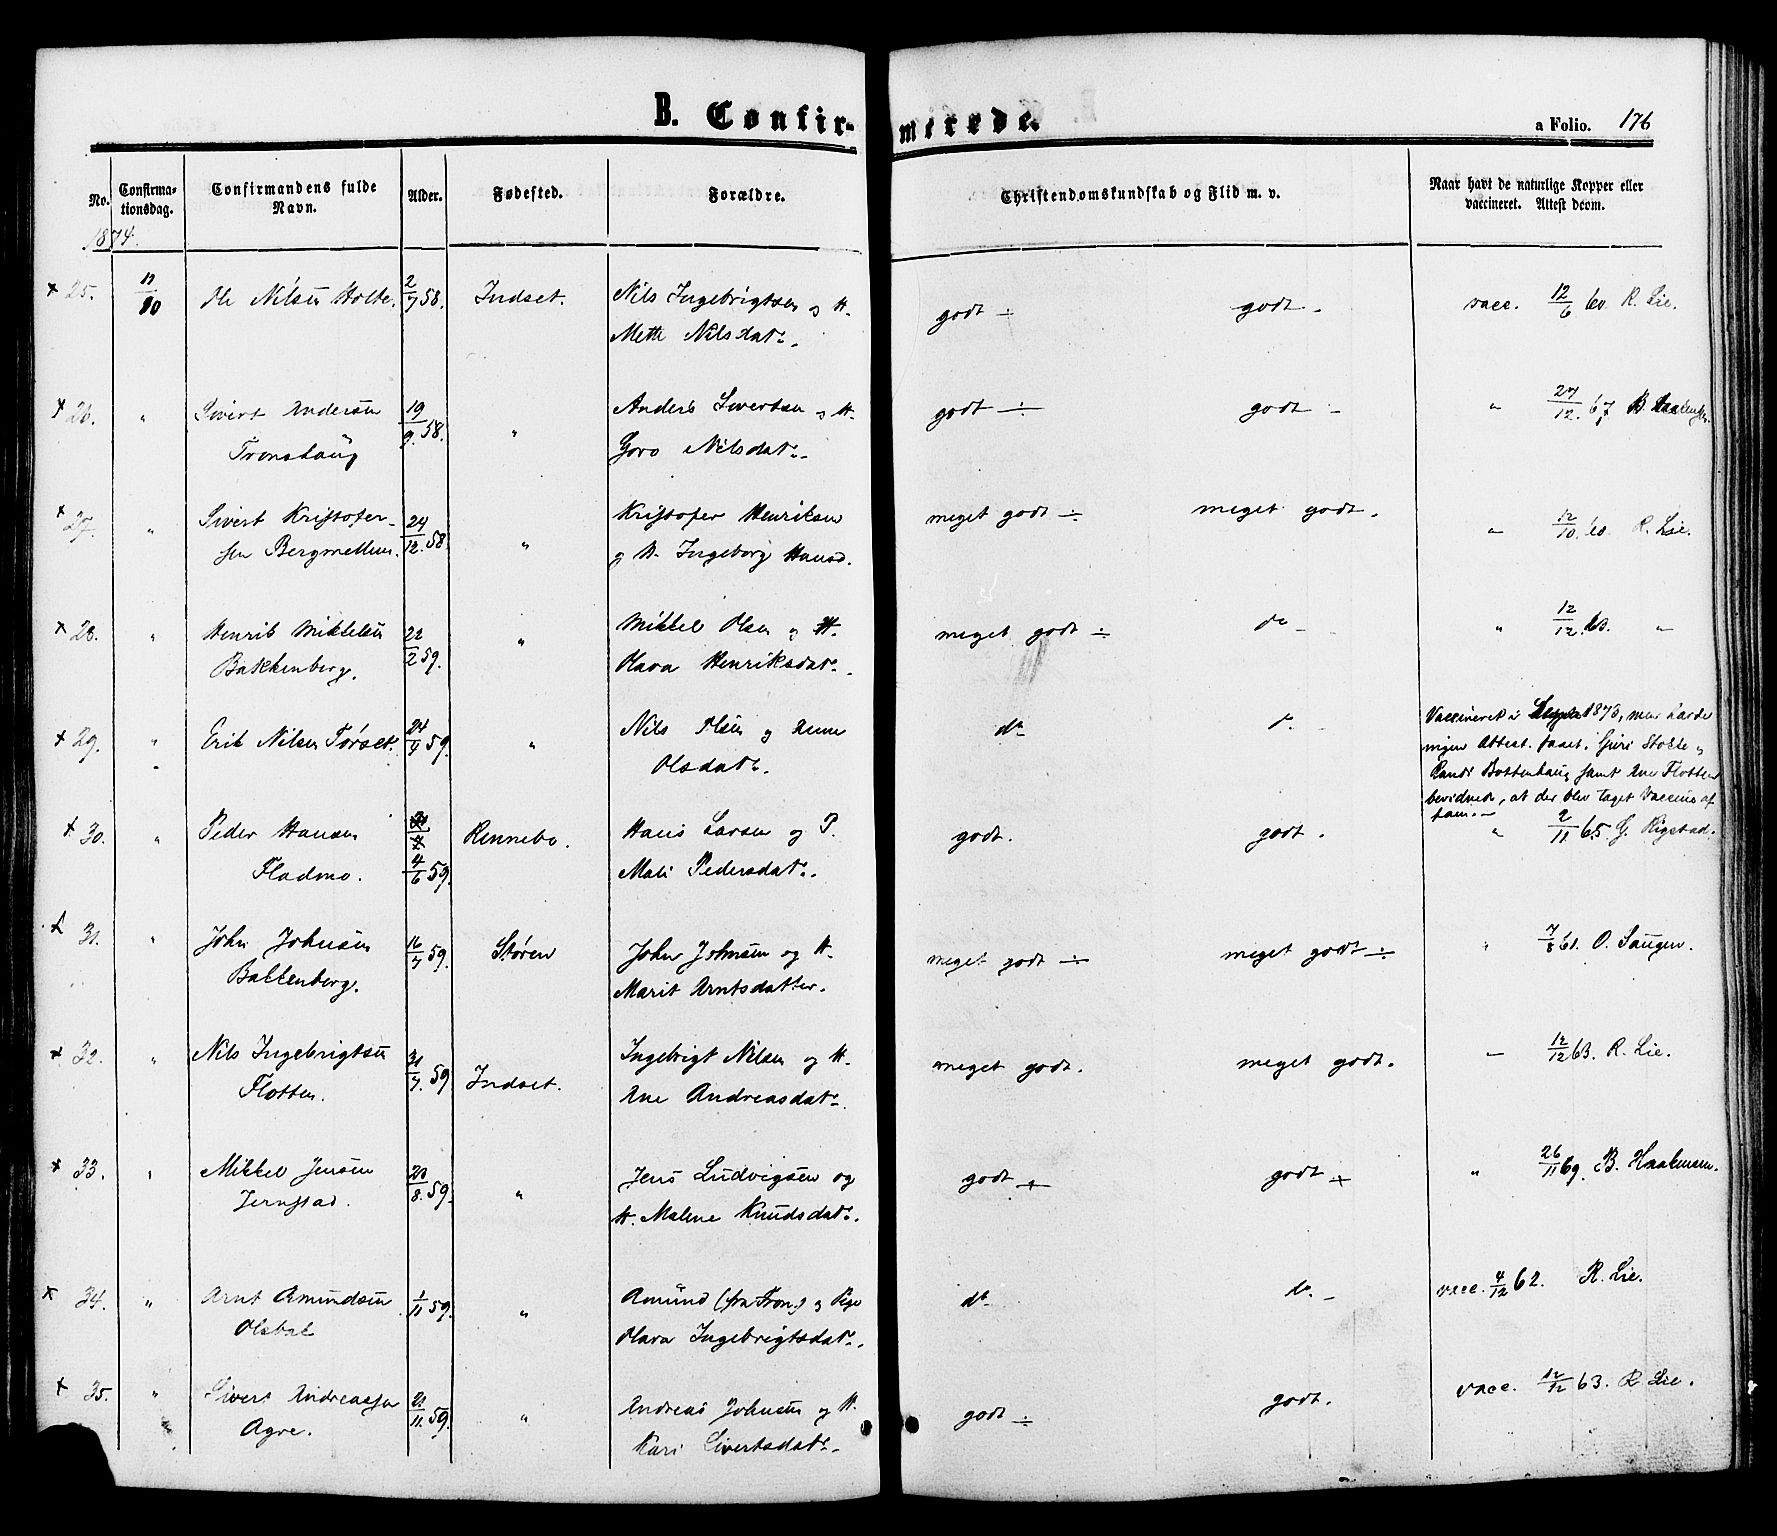 B. Confir-
merede.
a Folio. 176
No.
Confirma-
tionsdag.
Confirmandens fulde
Navn.
Alder.
Fødested.
Forældre.
Christendomskundskab og Flid m. v.
Naar havt de naturlige Kopper eller
vaccineret. Attest derom.
1874.
+ 25. 11/10 Ole Nilsen Holte. 2/7 58. Indset. Nils Ingebrigtsen og H.
Mette Nilsdatr.
godt ÷ godt. vacc. 12/6 60. R. Lie.
+ 26. " Sivert Andersen 19/9. 58. " Anders Sivertsen og H.
Tronshaug Goro Nilsdatr.
godt ÷ godt - " 27/12. 67 B. Haakensen.
+ 27. " Sivert Kristofer- 24/12. 58. " Kristofer Henriksen
sen Bergmellem. og H. Ingeborg Hansd.
meget godt ÷ meget godt. " 12/10. 60. R. Lie.
+ 28. " Henrik Mikkelsen 22/2 59. " Mikkel Olsen og H.
Bakkenberg. Olava Henriksdatr.
meget godt ÷ do - " 12/12. 63. "
+ 29. " Erik Nilsen Tørset. 24/4 59. " Nils Olsen og Anne
Olsdatr.
do do - Vaccineret i 1873, men havde
ingen Attest faaet. Guri Stokke og
Randi Bottenhaug samt Ane Flotten
bevidnede, at der blev taget Vaccine af
ham.-
+ 30. " Peder Hansen 4/6 59. Rennebo. Hans Larsen og P.
Fladmo. Mali Pedersdatr.
godt. godt. " 2/11. 65. G. Rigstad.
+ 31. " John Johnsen 16/7 59. Støren John Johnsen og H.
Bakkenberg. Marit Arntsdatter.
meget godt ÷ meget godt ÷ " 7/8 61. O. Haugen.
+ 32. " Nils Ingebrigtsen 31/7. 59 Indset. Ingebrigt Nilsen og H.
Flotten. Ane Andreasdatr.
meget godt. meget godt. " 12/12 63. R. Lie.
+ 33. " Mikkel Jensen 20/8. 59. " Jens Ludvigsen og
Jernstad. H. Malene Knudsdatr.
godt + godt + " 26/11 69. B. Haakensen.
+ 34. " Arnt Amundsen 1/11 59. " Amund (fra Tron.) og Pige
Olava Ingebrigtsdatr.
do do. - vacc. 4/12 62. R. Lie.
+ 35. " Sivert Andreassen 21/11. 59. " Andreas Johnsen og H.
Agre. Kari Sivertsdatr.
godt ÷ godt. vacc. 12/12 63. R. Lie.